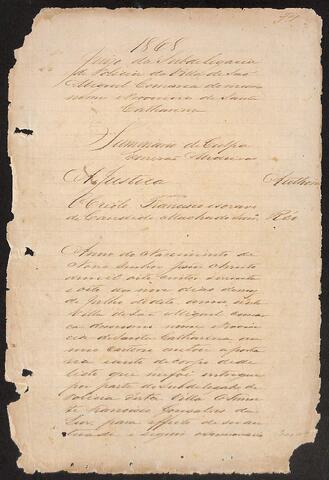 1868
Juizo da Subdelegacia
de Policia da Villa de São
Miguel Comarca do mesmo
nome e Provincia de Santa
Catharina
Summario de Culpa
Escrivão Medeiros
A Justiça Authora
O Crioulo Francisco escravo
de Candido Machado Réo
Anno do Nascimento de
Nosso Senhor Jesus Christo
de mil oito centos e sessenta
e oito aos nove dias do mez
de Julho do dito anno, n'esta
Villa de São Miguel comar
ca do mesmo nome Provin
cia de Santa Catharina em
meu cartorio autoei a porta
ria e auto de corpo de de
licto que me foi entregue
por parte do Subdelegado de
Policia desta Villa o Senhor
Francisco Gonsalves da
Luz, para effeito de se au
tuado e seguir o summario